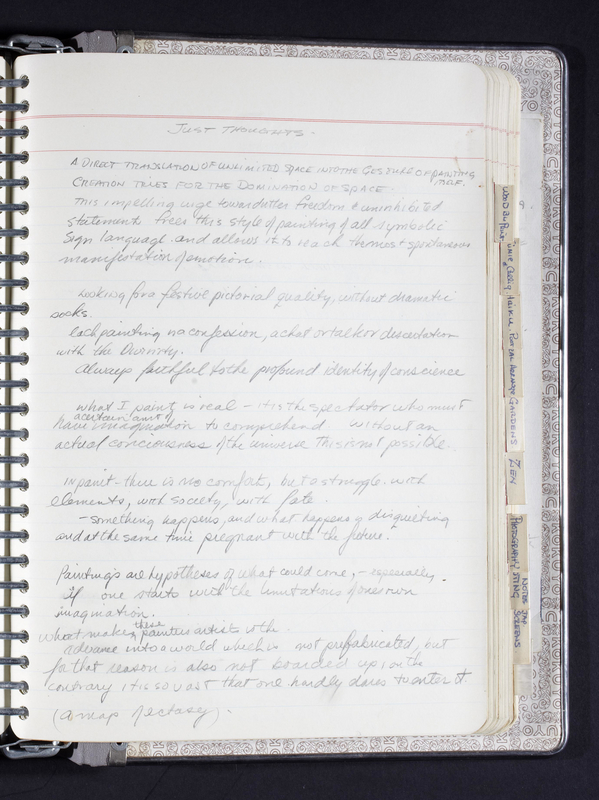 JUST THOUGHTS -
A DIRECT TRANSLATION OF UNLIMITED SPACE INTO THE GESTURE OF PAINTING
CREATION TRIES FOR THE DOMINATION OF SPACE.
This impelling urge toward utter freedom & uninhibited
statement frees this style of painting of all symbolic
sign language and allows it to reach themes & spontaneous
manifestation of emotion.
Looking for a festive pictorial quality, without dramatic
socks.
Each painting no confession, a chat or talk or dissertation
with the Divinity.
Always faithful to the profound identity of conscience
what I paint is real - it is the spectator who must
a certain amt of
have imagination to comprehend without an
actual conciousness of the universe this isn't possible.
IN paint - there is no comfort, but a struggle with
elements, with society, with fate.
- something happens, and what happens is disquieting
and at the same time pregnant with the future.
Paintings are hypotheses of what could come, - especially
if one starts with the limitations of ones own
imagination.
what makes these painters artists is the
advance into a world which is not prefabricated, but
for that reason is also not boarded up, on the
contrary it is so vast that one hardly dares to enter it.
(a map of ectasy).
HAIKU
GARDENS
ZEN
PHOTOGRAPHY
NOTES JAP
SCREENS